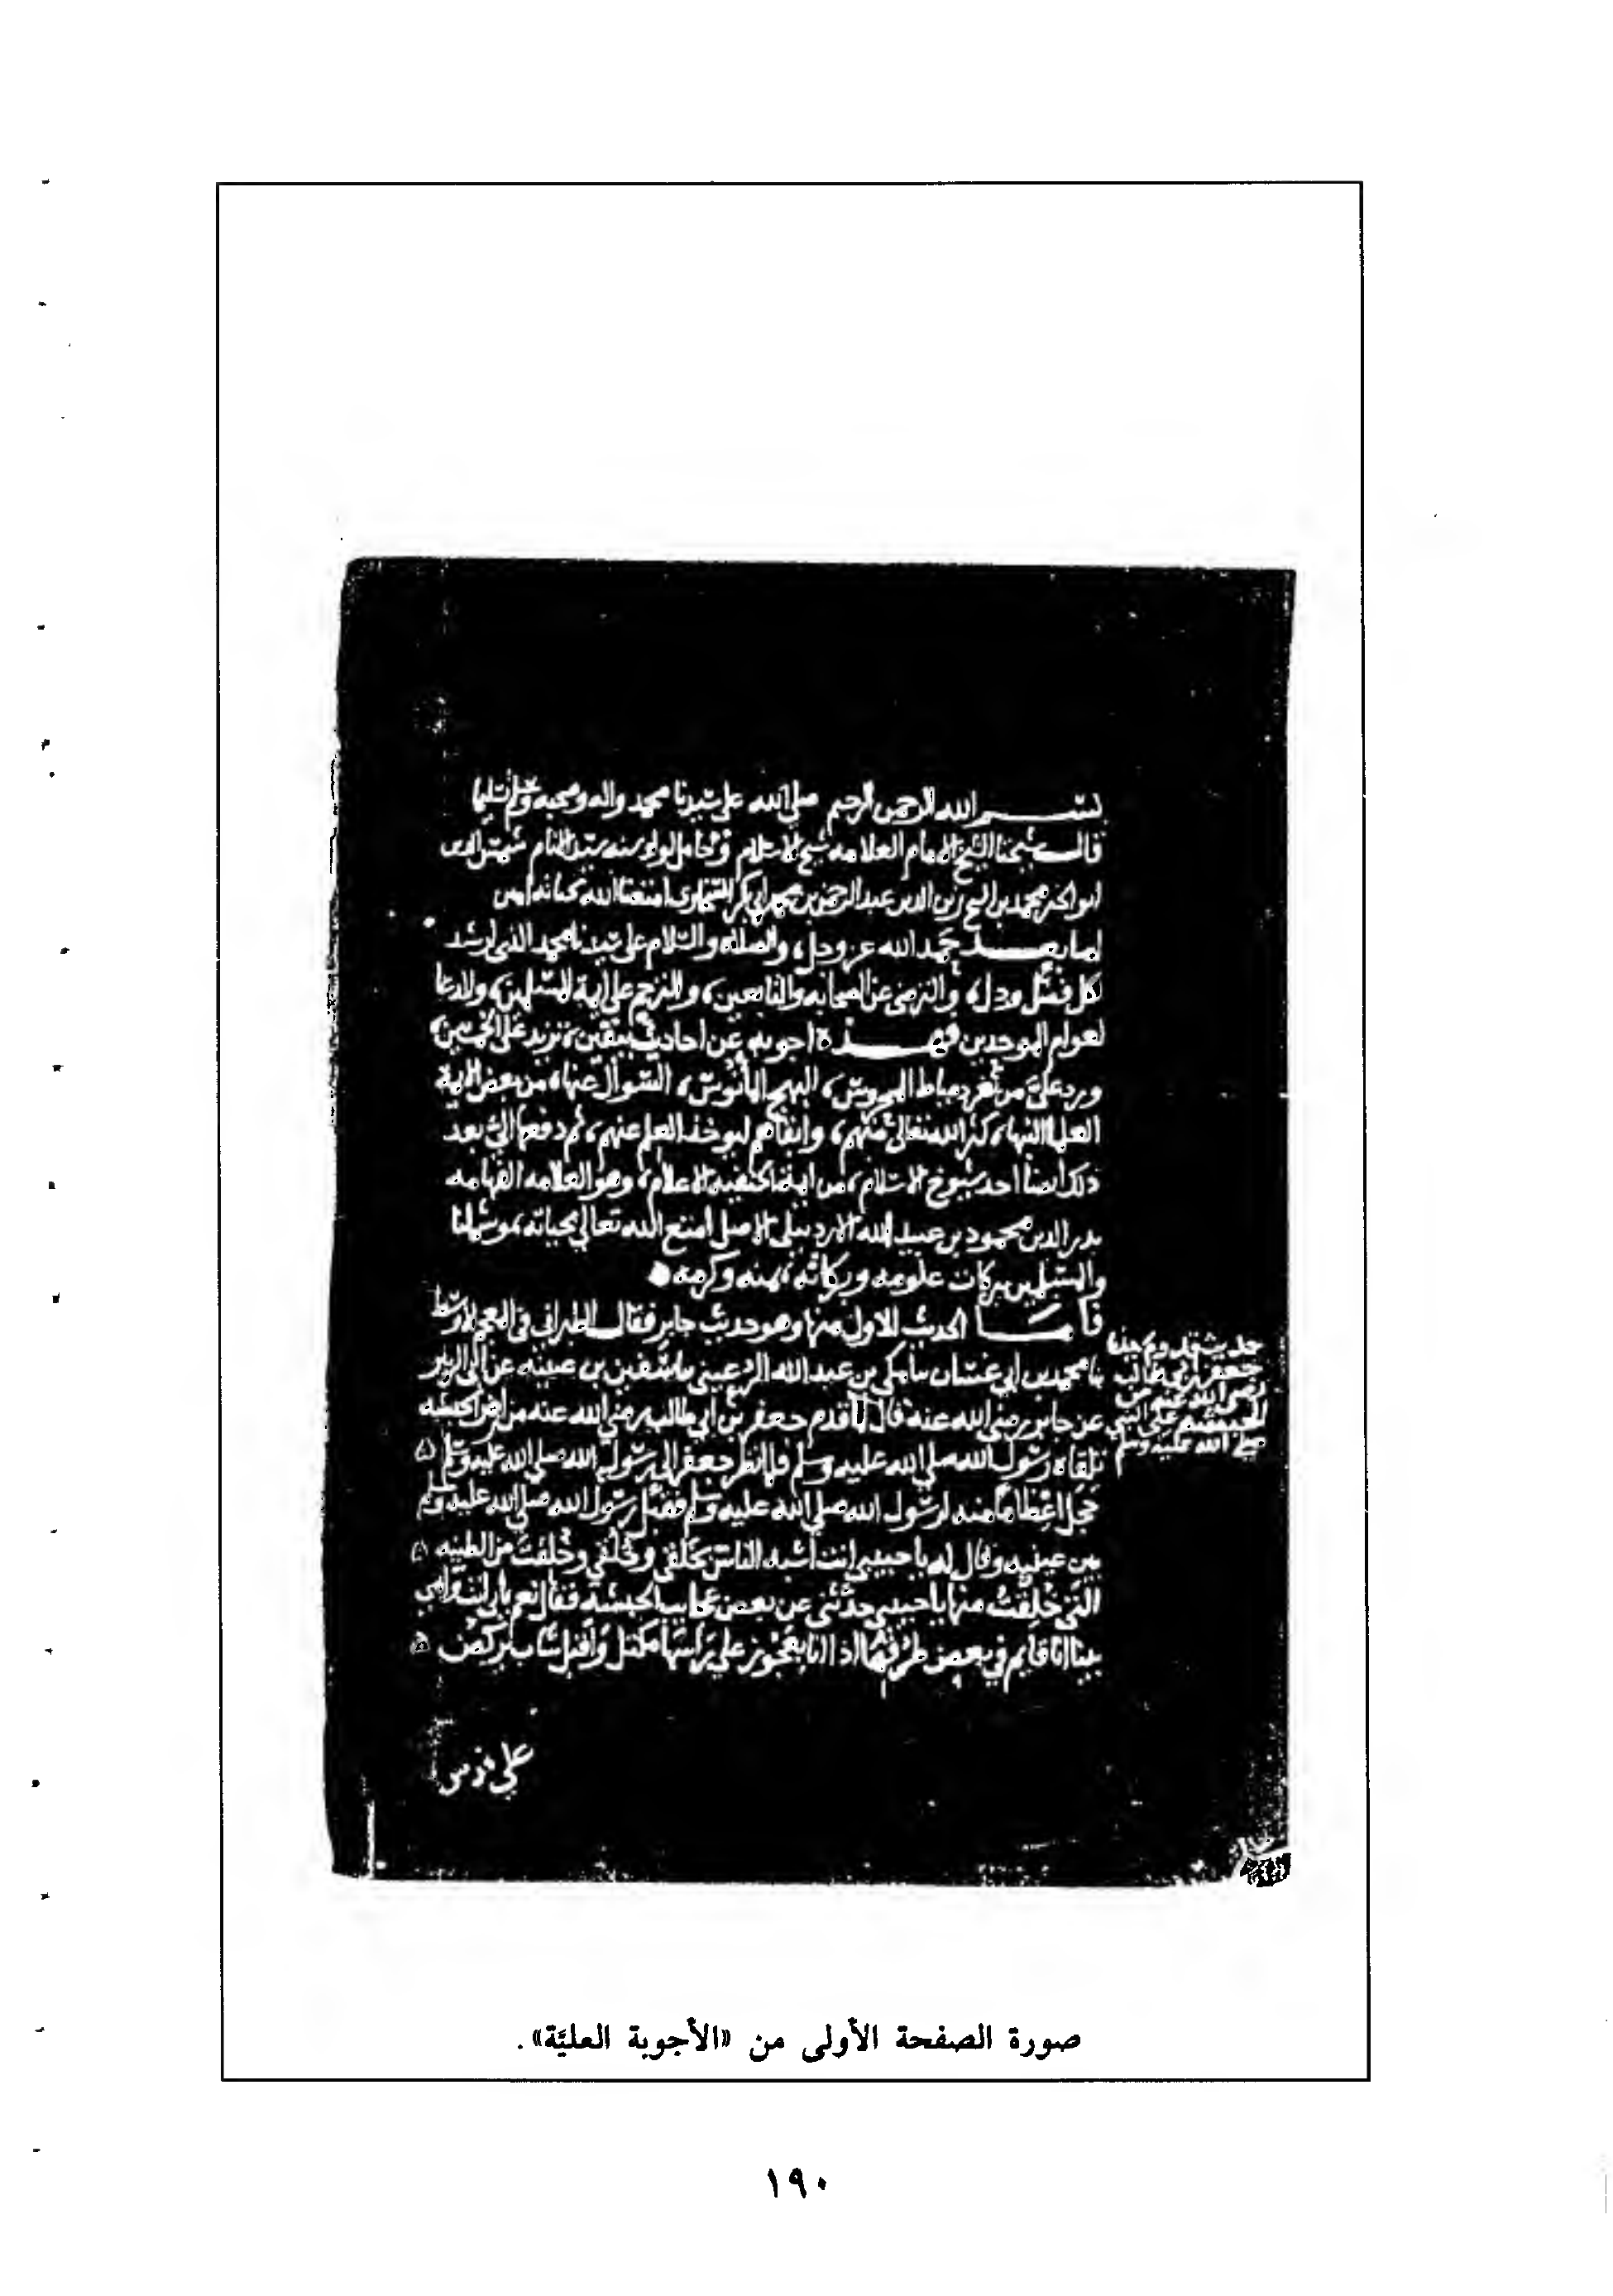 بسم الله الرحمن الرحيم صلى الله على سيدنا محمد واله وصحبه وسلم تسليما
قال شيخنا الشيخ الامام العلامه شيخ الاسلام وحامل لواء سنه سيد الانام شمس الدين
ابو الخير محمد بن الشيخ زين الدين عبد الرحمن بن محمد بن ابي بكر السخاوى امتعنا الله بحياته امين
اما بعد حمد الله عز وجل، والصلاه والسلام على سيدنا محمد الذي ارشد
لكل فضل ودل، والترضي عن الصحابه والتابعين، والترحم على ايمة المسلمين، والدعا
لعوام الموحدين فهذه اجوبه عن احاديث تزيد على الخمسين
ورد علي من ثغر دمياط المحروس، البهج المانوس، السوال عنها، من بعض الايمة
العلما النبها، كثر الله تعالى منهم، وابقاهم ليوخذ العلم عنهم، ثم دفعها الي بعد
ذلك ايضا احد شيوخ الاسلام، من ايمة الاعلام، وهو العلامه الفهامه
بدر الدين محمود بن عبيد الله الاردبيلي الاصل امتع الله تعالى بحياته،
والمسلمين ببركات علومه وبركاته، بمنه وكرمه
فاما الحديث الاول منها وهو حديث جابر فقال الطبراني في المعجم الاوسط
بنا محمد بن ابي غسان بنا مكي بن عبد الله الرعيني بنا سفين بن عيينه عن ابي الزبير
عن جابر رضي الله عنه قال لما قدم جعفر بن ابي طالب رضي الله عنه من ارض الحبشه
تلقاه رسول الله صلى الله عليه وسلم فلما نظر جعفر الى رسول الله صلى الله عليه وسلم
حجل اعظاما منه لرسول الله صلى الله عليه وسلم فقبل رسول الله صلى الله عليه وسلم
بين عينيه وقال له يا حبيبي انت اشبه الناس بخلقي وخلقي وخلقت من الطينه
التي خلقت منها يا حبيبي حدثني عن بعض عجايب الحبشه فقال نعم بابي انت وامي
بينا انا قايم في بعض طرقها اذ انا بعجوز على راسها مكتل واقبل شاب يركض
حديث قدوم
جعفر بن ابي طالب
رضي الله عنه من
الحبشة على النبي
صلى الله عليه وسلم
على فرس
صورة الصفحة الأولى من «الأجوبة العليَّة».
١٩٠